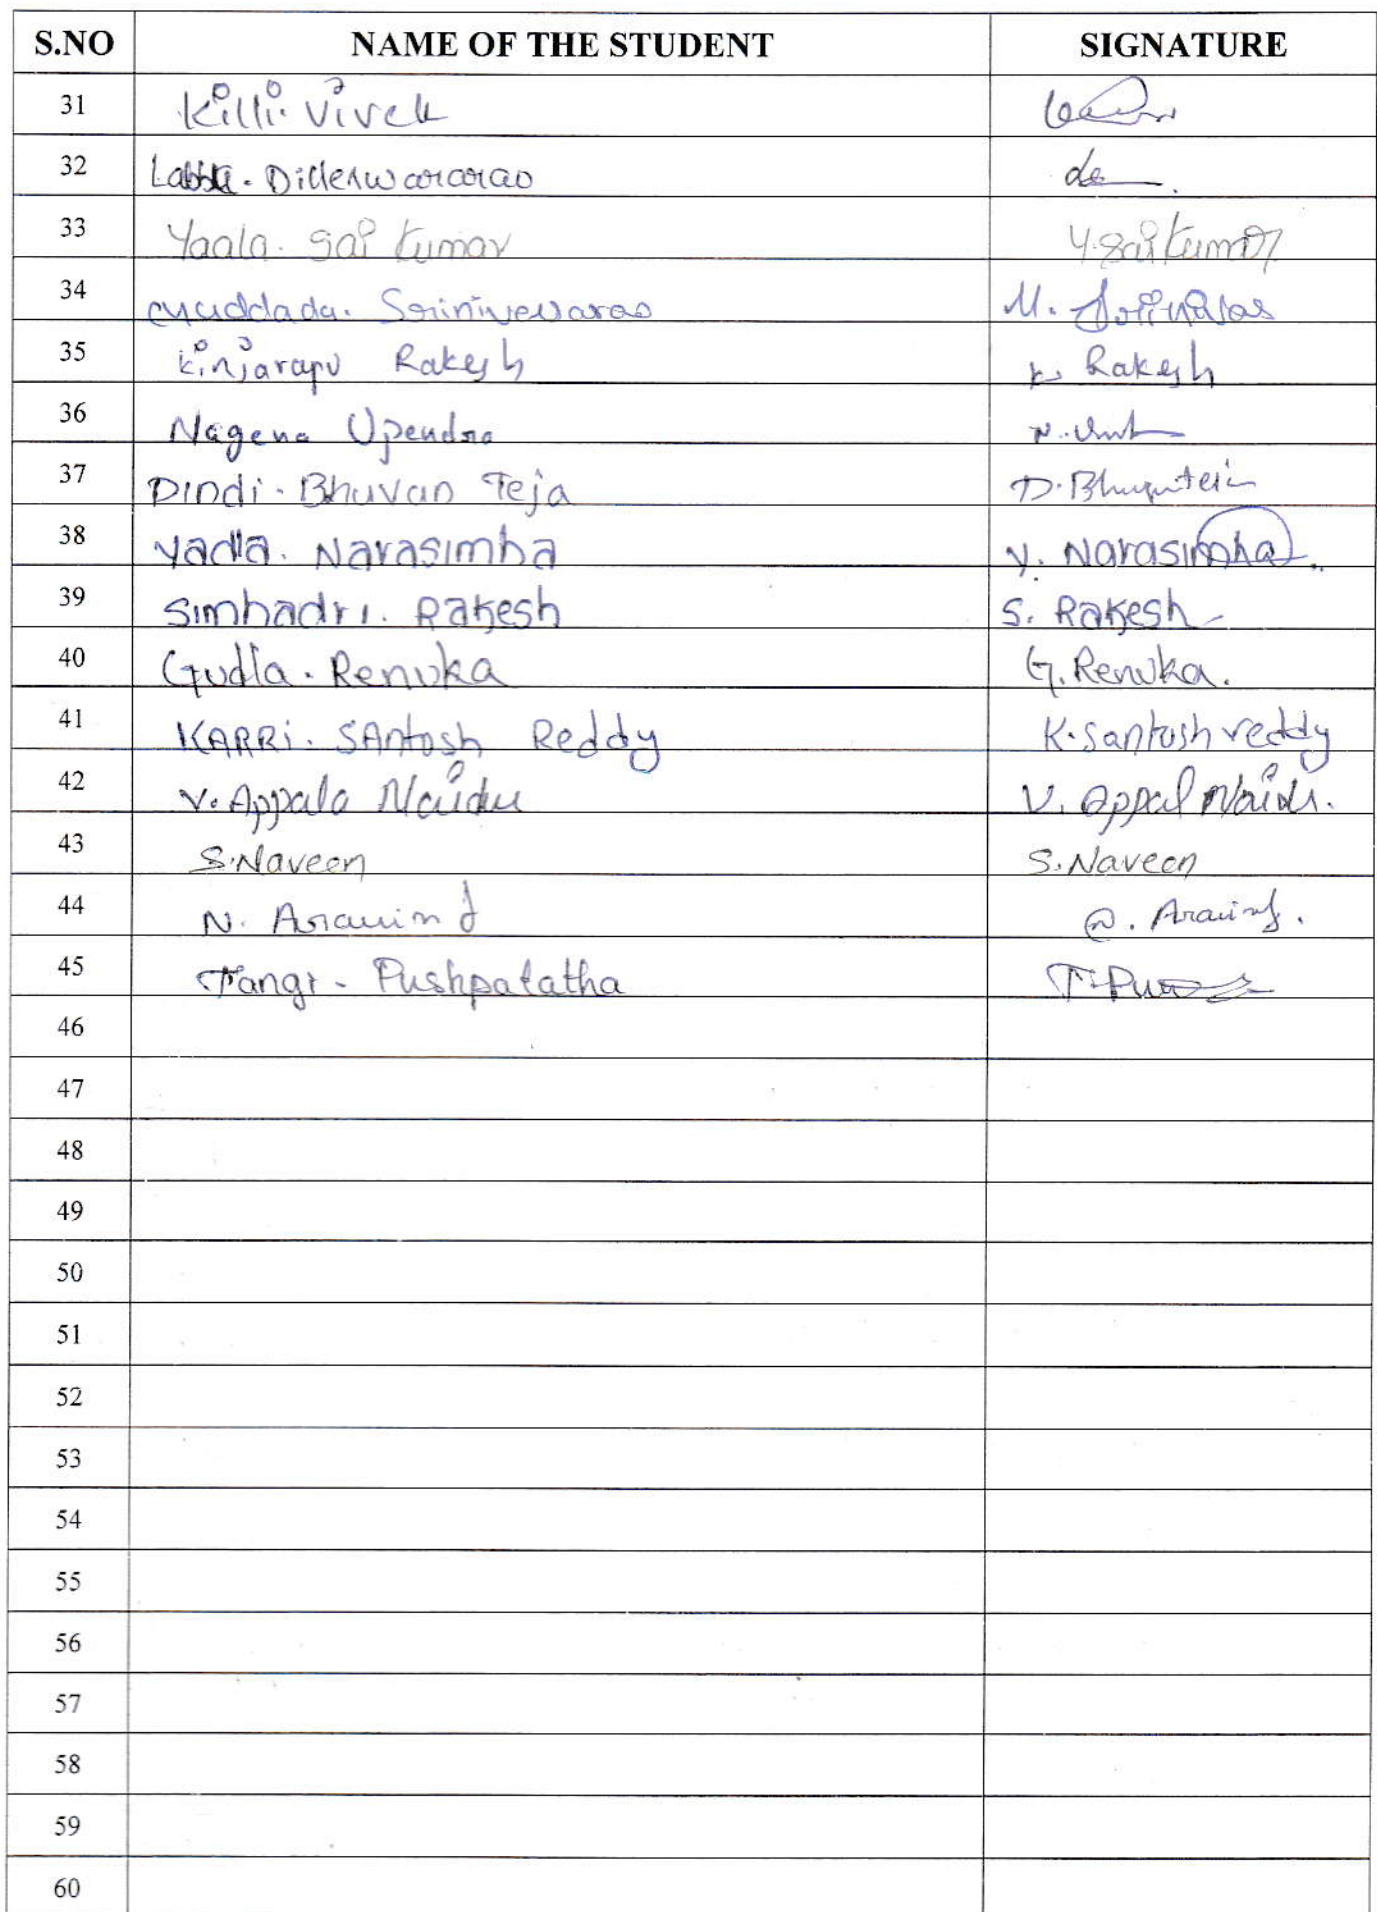 S.NO NAME OF THE STUDENT SIGNATURE
31 Killi. Vivek
32 Dilleswararao
33 Yaala. Sai Kumar Y. Sai Kumar
34 Muddada. Srinivesarao M. Srinivas
35 Kinjarapu Rakesh K Rakesh
36 Nagena Upendra
37 Dindi. Bhuvan Teja D. Bhuvanteja
38 Yadla. Narasimha Y. Narasimha
39 Simhadri. Rakesh S. Rakesh
40 Gudla. Renuka G. Renuka.
41 KARRi. SAntosh Reddy K. Santosh reddy
42 V. Appala Naidu V. Appal Naidu.
43 S. Naveen S. Naveen
44 N. Aravind Aravind.
45 Tangi - Pushpalatha
46
47
48
49
50
51
52
53
54
55
56
57
58
59
60